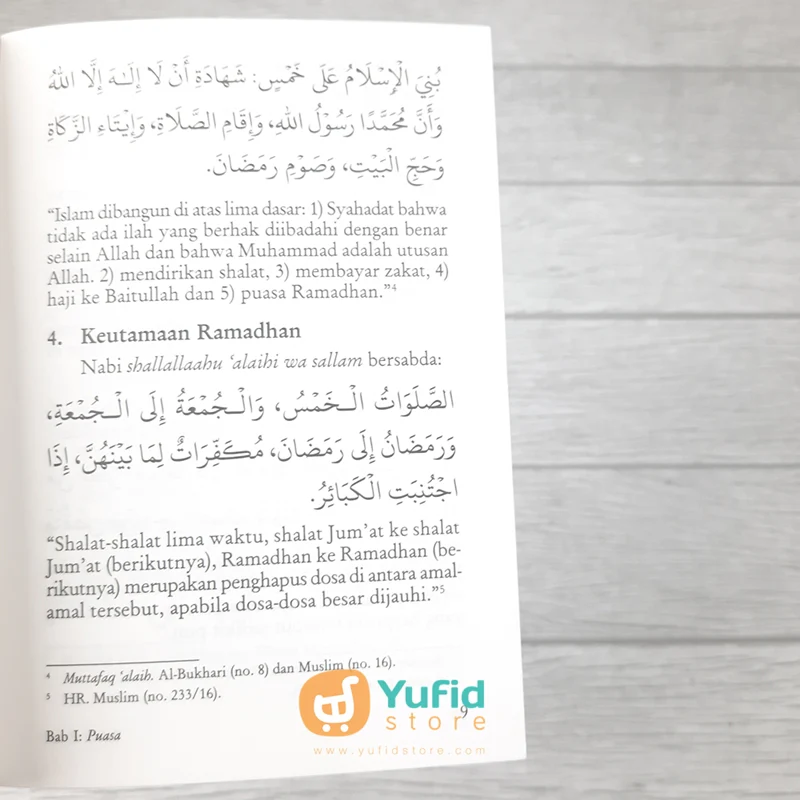 بُنِيَ الْإِسْلَامُ عَلَى خَمْسٍ: شَهَادَةِ أَنْ لَا إِلَـٰهَ إِلَّا اللهُ
وَأَنَّ مُحَمَّدًا رَسُوْلُ اللهِ، وَإِقَامِ الصَّلَاةِ، وَإِيْتَاءِ الزَّكَاةِ
وَحَجِّ الْبَيْتِ، وَصَوْمِ رَمَضَانَ.
“Islam dibangun di atas lima dasar: 1) Syahadat bahwa
tidak ada ilah yang berhak diibadahi dengan benar
selain Allah dan bahwa Muhammad adalah utusan
Allah. 2) mendirikan shalat, 3) membayar zakat, 4)
haji ke Baitullah dan 5) puasa Ramadhan.”⁴
4. Keutamaan Ramadhan
Nabi shallallaahu ‘alaihi wa sallam bersabda:
الصَّلَوَاتُ الْـخَمْسُ، وَالْـجُمْعَةُ إِلَى الْـجُمْعَةِ،
وَرَمَضَانُ إِلَى رَمَضَانَ، مُكَفِّرَاتٌ لِمَا بَيْنَهُنَّ، إِذَا
اجْتُنِبَتِ الْكَبَائِرُ.
“Shalat-shalat lima waktu, shalat Jum’at ke shalat
Jum’at (berikutnya), Ramadhan ke Ramadhan (be-
rikutnya) merupakan penghapus dosa di antara amal-
amal tersebut, apabila dosa-dosa besar dijauhi.”⁵
⁴ Muttafaq ‘alaih. Al-Bukhari (no. 8) dan Muslim (no. 16).
⁵ HR. Muslim (no. 233/16).
Bab I: Puasa
9
Yufid
store
www.yufidstore.com